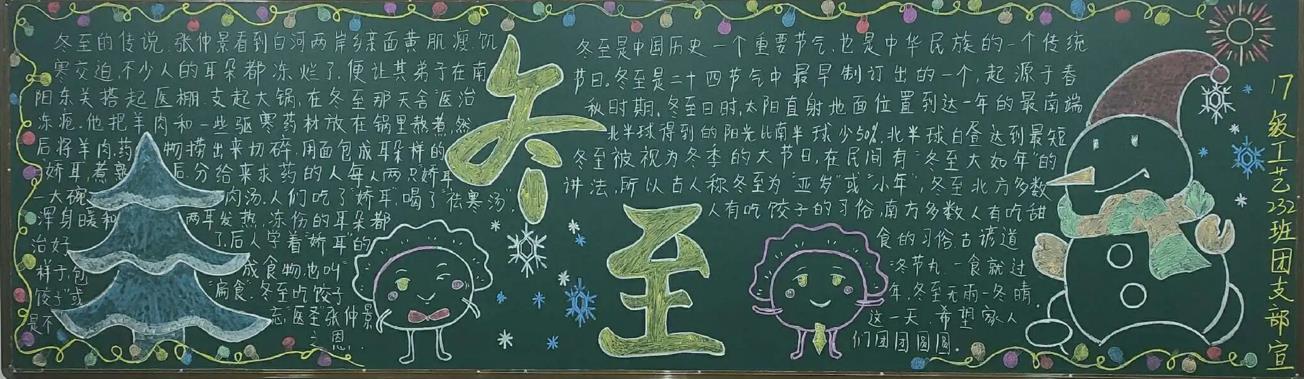 冬至的传说.张仲景看到白河两岸乡亲面黄肌瘦.饥
寒交迫.不少人的耳朵都冻烂了.便让其弟子在南
阳东关搭起医棚.支起大锅.在冬至那天舍医治
冻疮.他把羊肉和一些驱寒药材放在锅里熬煮.然
后将羊肉.药物捞出来切碎.用面包成耳朵样的
"娇耳".煮熟后.分给来求药的人每人两只娇耳
一大碗肉汤.人们吃了"娇耳".喝了"祛寒汤",
浑身暖和两耳发热,冻伤的耳朵都
治好了.后人学着"娇耳"的
样子包成食物.也叫"
饺子"或"扁食".冬至吃饺子
是不忘"医圣"张仲景
之恩.
冬至
冬至是中国历史一个重要节气.也是中华民族的一个传统
节日.冬至是二十四节气中最早制订出的一个,起源于春
秋时期,冬至日时,太阳直射地面位置到达一年的最南端
北半球得到的阳光比南半球少50%,北半球白昼达到最短
冬至被视为冬季的大节日,在民间有"冬至大如年"的
讲法,所以古人称冬至为"亚岁"或"小年",冬至北方多数
人有吃饺子的习俗,南方多数人有吃甜
食的习俗.古谚道
"冬节丸,一食就过
年,冬至无雨一冬晴.
这一天,希望家人
们团团圆圆。
17级工艺232班团支部宣